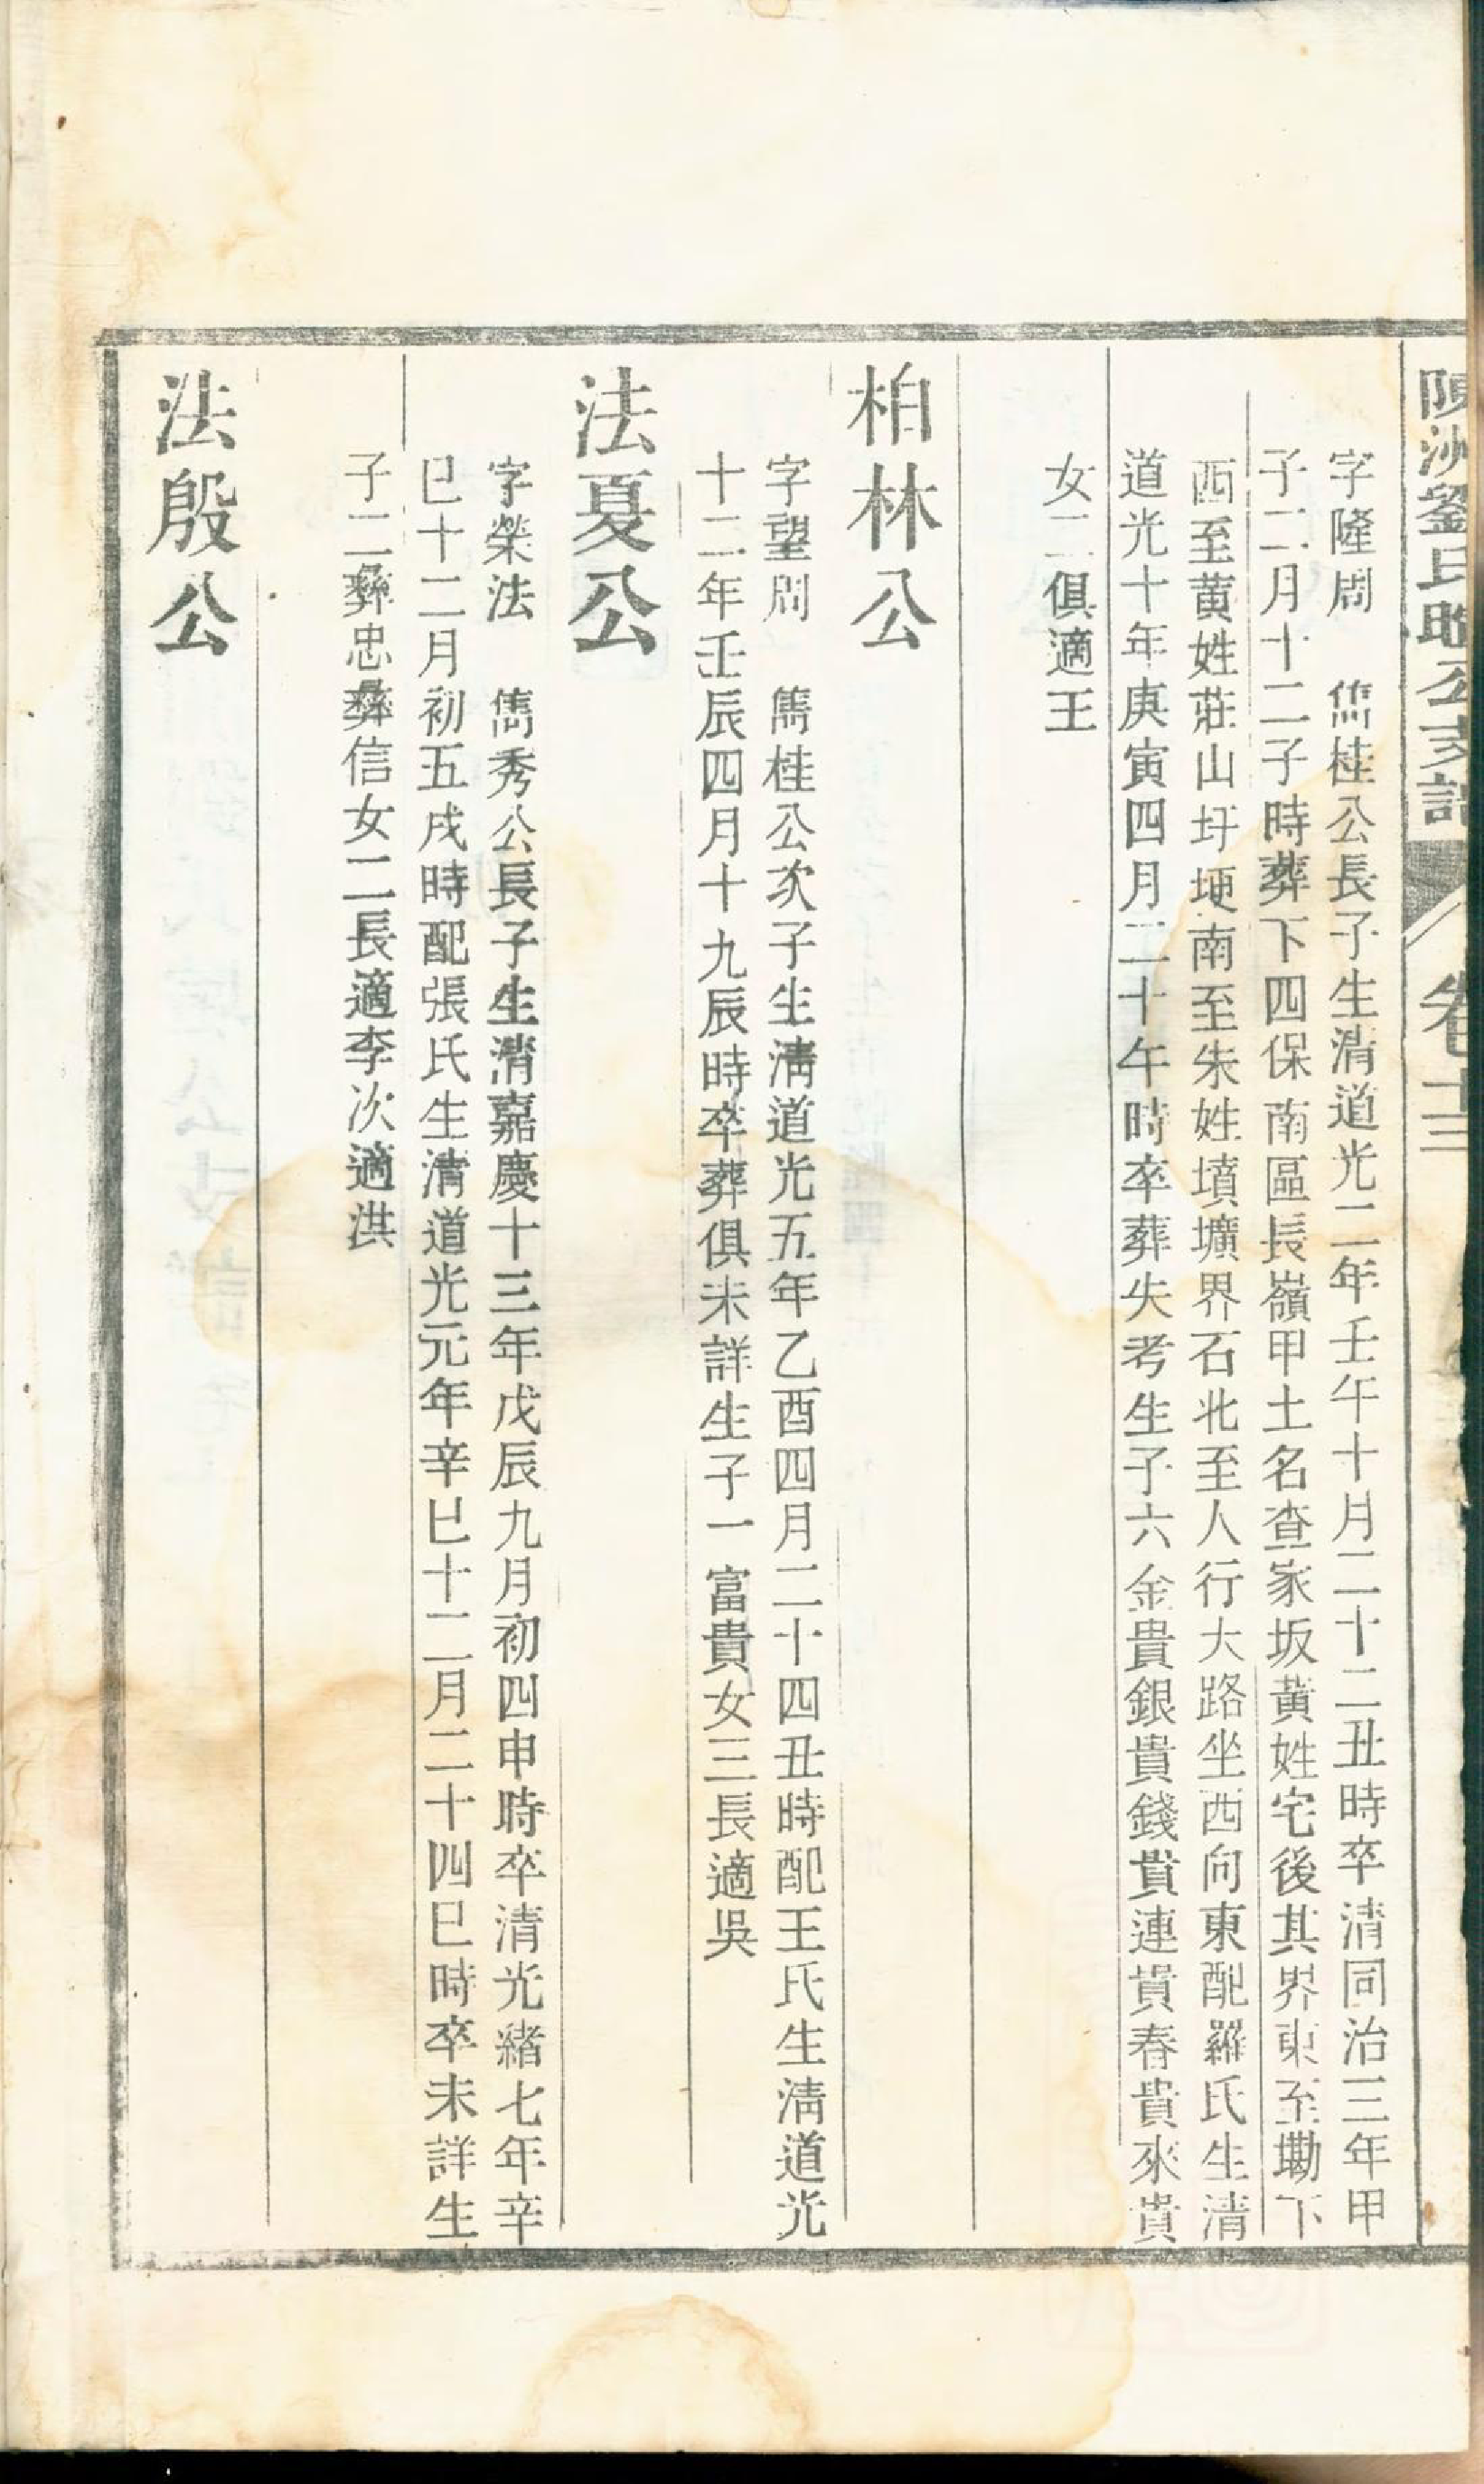 陳洲劉氏昭公支譜 卷十三
字隆周 儁桂公長子生清道光二年壬午十月二十二丑時卒清同治三年甲
子二月十二子時葬下四保南區長嶺甲土名查家坂黃姓宅後其界東至墈下
西至黃姓莊山圩埂南至朱姓墳壙界石北至人行大路坐西向東配羅氏生清
道光十年庚寅四月二十午時卒葬失考生子六金貴銀貴錢貴連貴春貴來貴
女二俱適王
柏林公
字望周 儁桂公次子生清道光五年乙酉四月二十四丑時配王氏生清道光
十二年壬辰四月十九辰時卒葬俱未詳生子一富貴女三長適吳
法夏公
字榮法 儁秀公長子生清嘉慶十三年戊辰九月初四申時卒清光緒七年辛
巳十二月初五戌時配張氏生清道光元年辛巳十二月二十四巳時卒未詳生
子二彝忠彝信女二長適李次適洪
法殷公